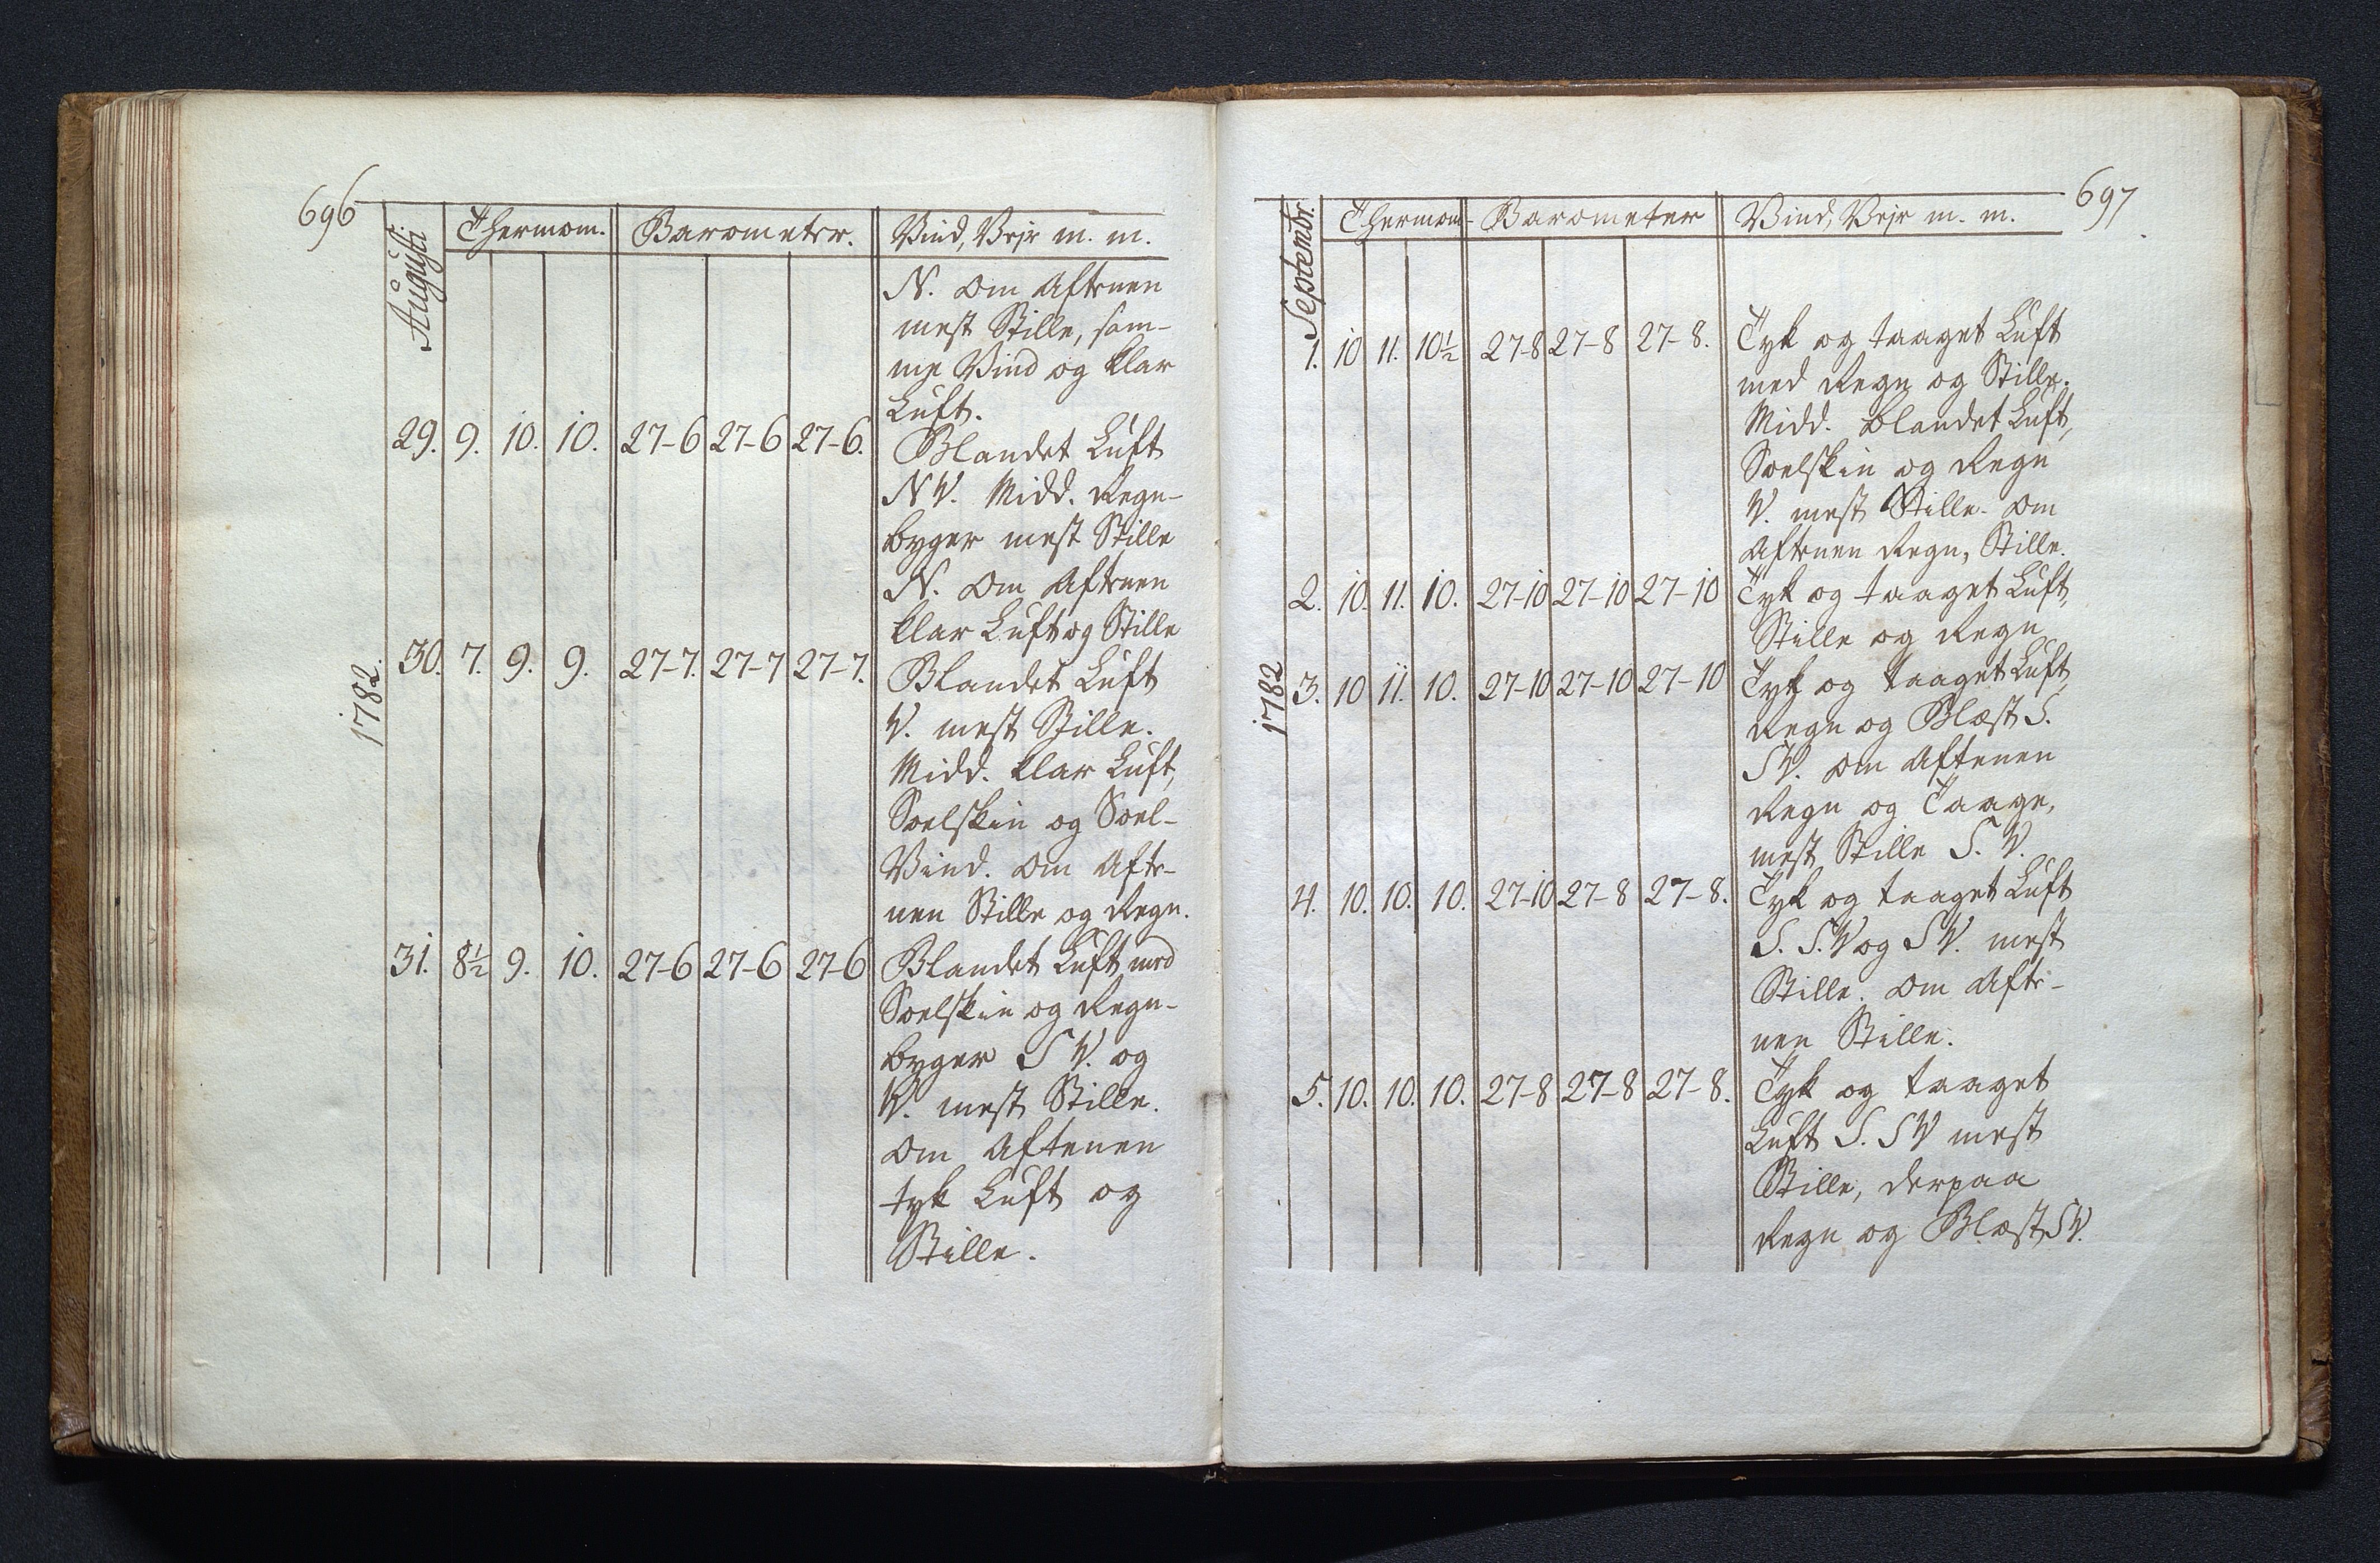 696
Augusti
Thermom. Barometer. Vind, Vejr m. m.
N. om Aftenen
mest Stille, sam-
me Vind og klar
Luft.
29. 9. 10. 10. 27-6 27-6 27-6. Blandet Luft
NV. Midd. Regn-
byger mest Stille
N. om Aftenen
klar Luft og Stille
1782.
30. 7. 9. 9. 27-7. 27-7 27-7. Blandet Luft
V. mest Stille.
Midd. klar Luft,
Soelskin og Soel-
Vind. om Afte-
nen Stille og Regn.
31. 8½ 9. 10. 27-6 27-6 27-6 Blandet Luft med
Soelskin og Regn-
byger SV. og
V. mest Stille.
om Aftenen
tyk Luft og
Stille.
697
Septembr.
Thermom- Barometer Vind, Vejr m. m.
1. 10 11. 10½ 27-8 27-8 27-8. Tyk og taaget Luft
med Regn og Stille.
Midd. blandet Luft,
Soelskin og Regn
V. mest Stille. om
Aftenen Regn, Stille.
2. 10. 11. 10. 27-10 27-10 27-10 Tyk og taaget Luft,
Stille og Regn
1782
3. 10 11. 10. 27-10 27-10 27-10 Tyk og taaget Luft,
Regn og Blæst S.
SV. om Aftenen
Regn og Taage,
mest Stille S. V.
4. 10. 10. 10. 27-10 27-8 27-8. Tyk og taaget Luft
S. S.V og SV. mest
Stille. om Afte-
nen Stille.
5. 10. 10. 10. 27-8 27-8 27-8. Tyk og taaget
Luft S. SV mest
Stille, derpaa
Regn og Blæst SV.